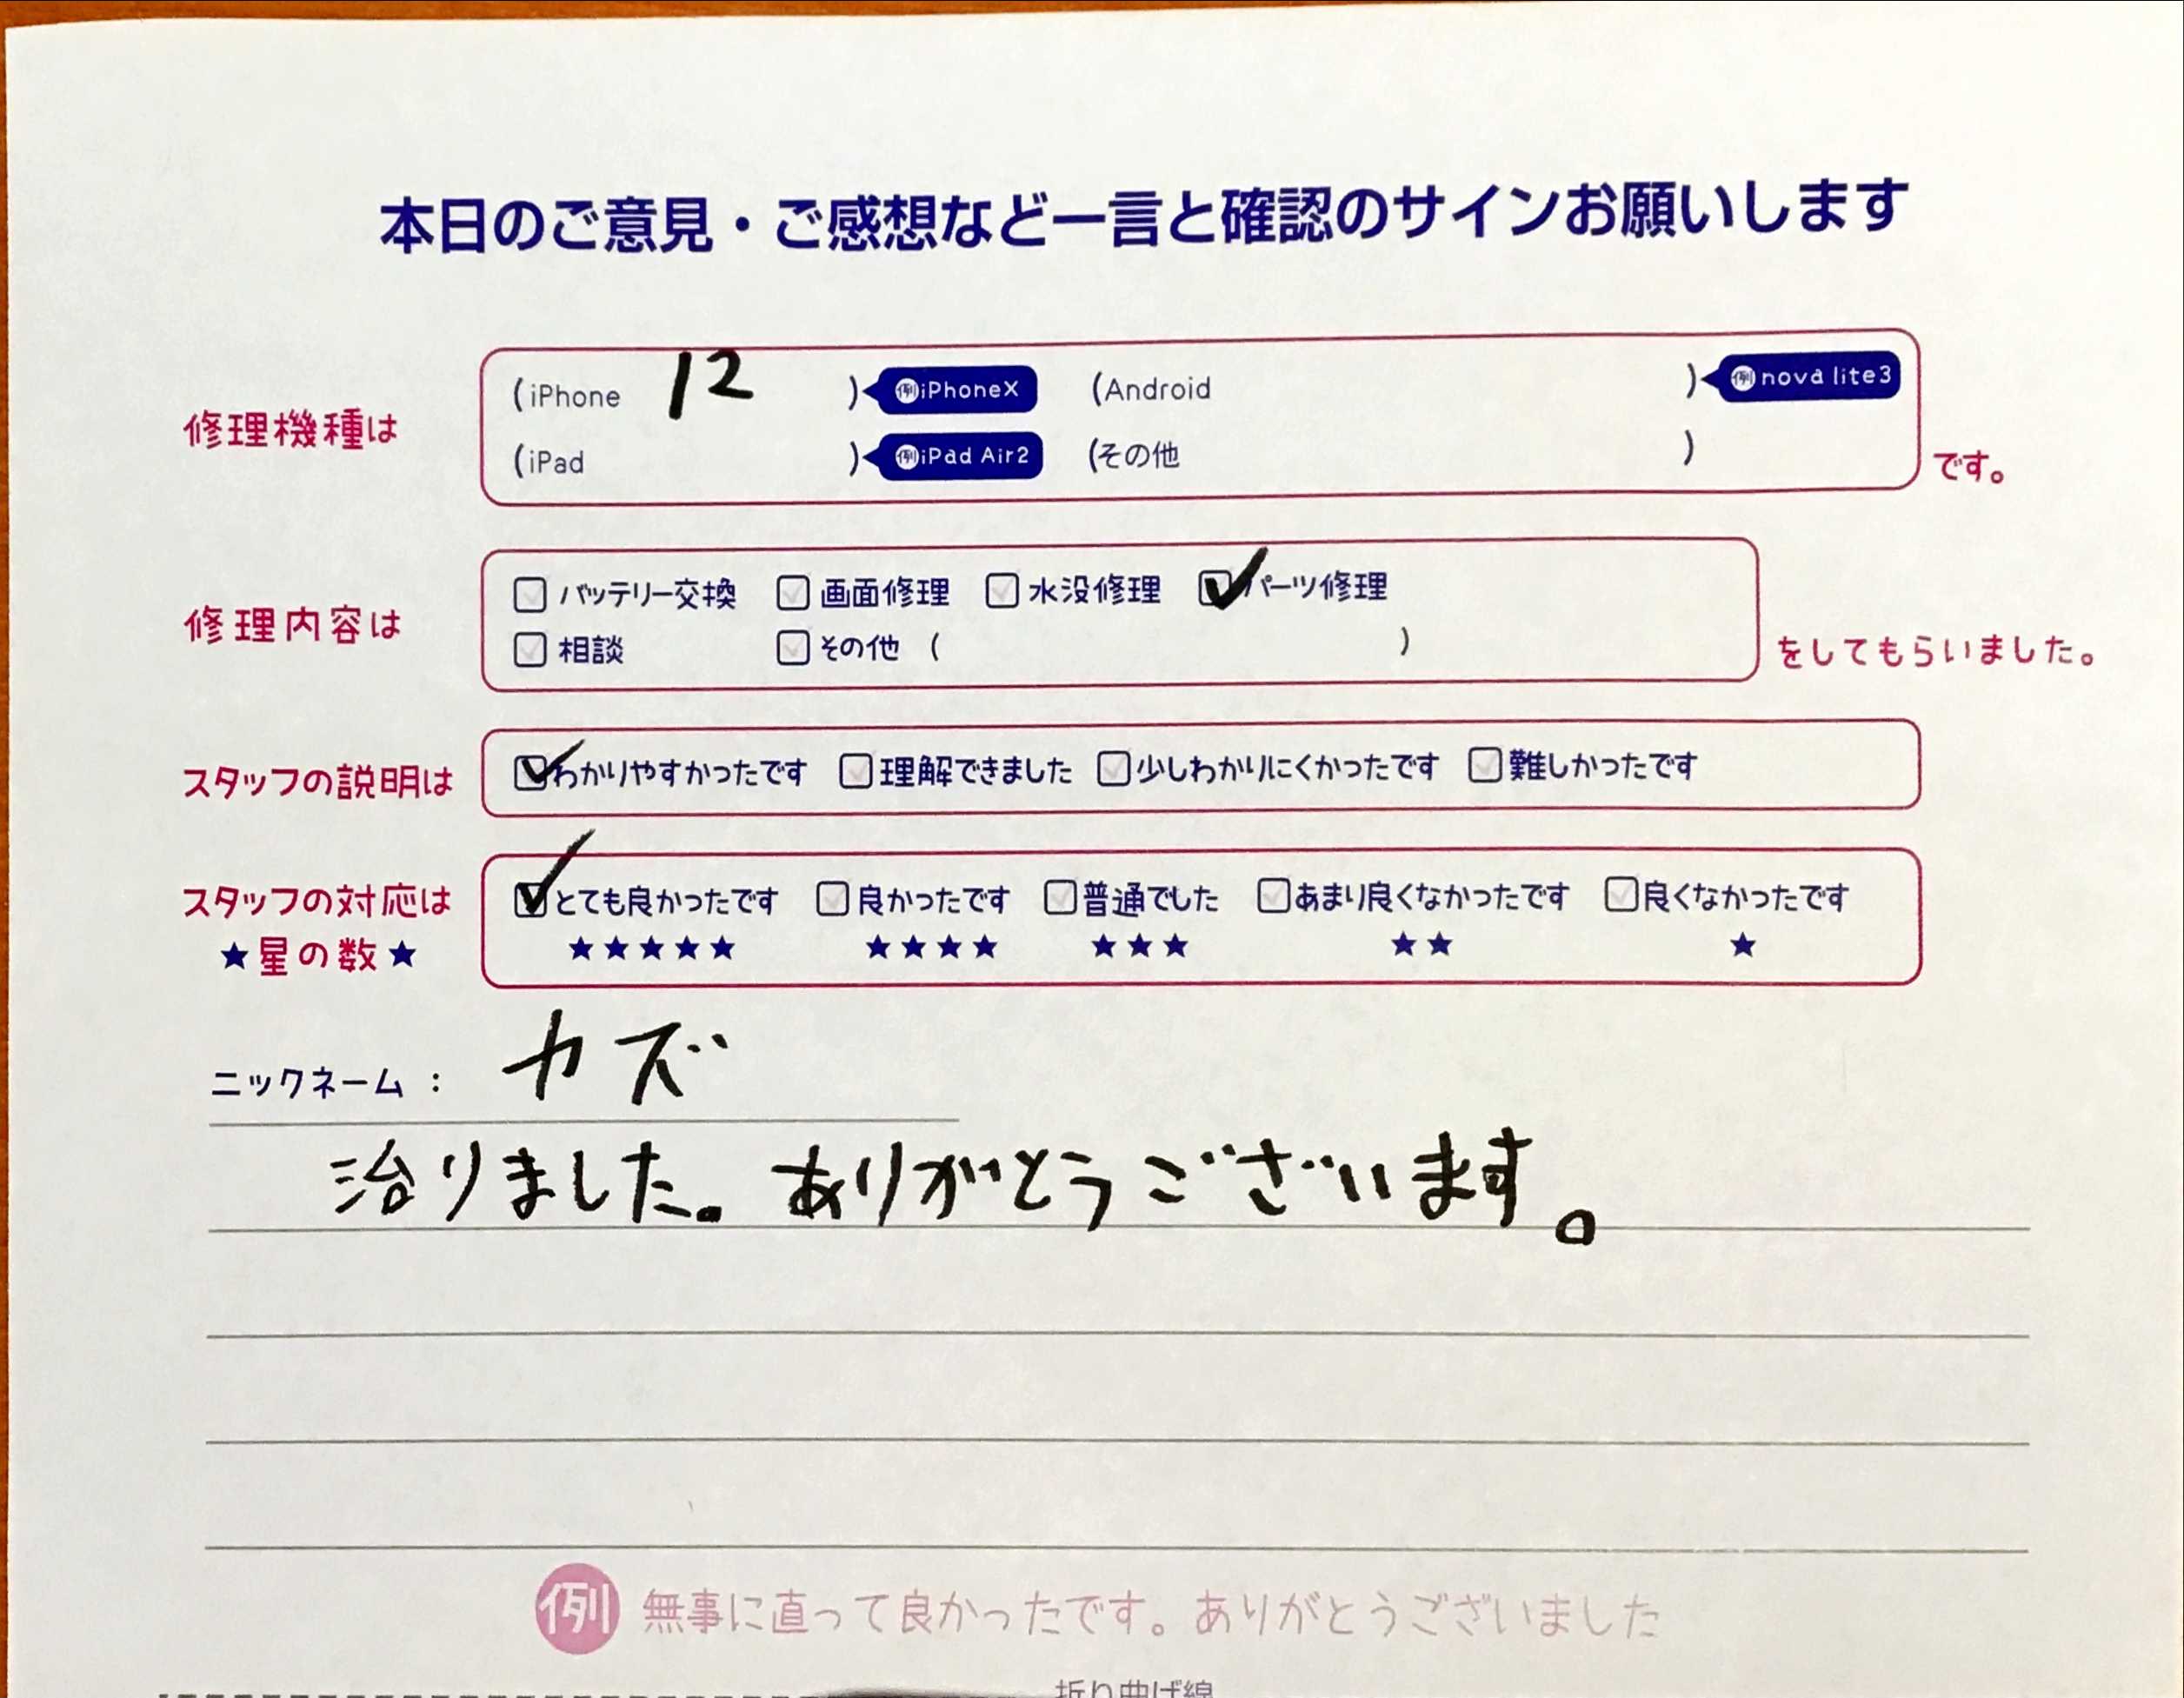 本日のご意見・ご感想など一言と確認のサインお願いします
修理機種は
(iPhone 12 ) 例iPhoneX (Android ) 例nova lite3
(iPad ) 例iPad Air2 (その他 )
です。
修理内容は
バッテリー交換 画面修理 水没修理 パーツ修理
相談 その他 ( )
をしてもらいました。
スタッフの説明は
わかりやすかったです 理解できました 少しわかりにくかったです 難しかったです
スタッフの対応は
★星の数★
とても良かったです 良かったです 普通でした あまり良くなかったです 良くなかったです
★★★★★ ★★★★ ★★★ ★★ ★
ニックネーム: カズ
治りました。ありがとうございます。
例 無事に直って良かったです。ありがとうございました
折り曲げ線